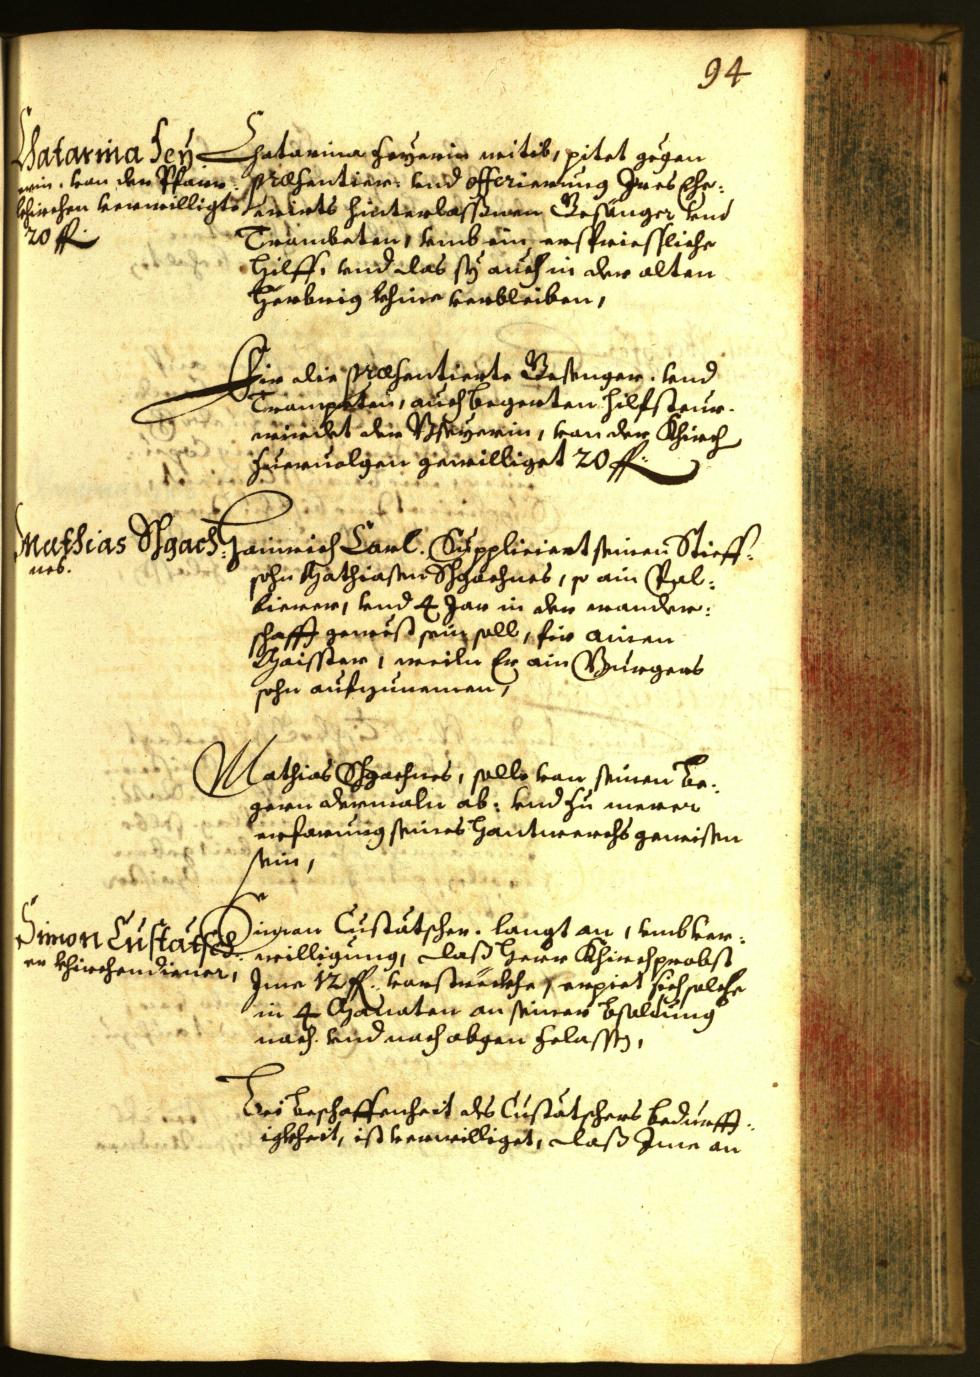 94
Chatarina Fey
erin. von der Pfarr:
khirchen verwilligt
20 ff.
Chatarina Feyerin witib, pitet gegen
præsentier: vnd offerierung Ires Ehe:
wirts hinterlassnen Gesänger vnd
Trumbeten, vmb ein erspriessliche
Hilff, vnd das sy auch in der alten
Herbrig khine verbleiben,
Fir die præsentierte Gesenger. vnd
Trumpeten, auch begerten hilfsteur.
wirdet der Feyerin, von der Khirch
gewilliget 20 ff.
Mathias Schgach:
nes.
Hainrich Carl. Suppliciert seinen Stieff:
sohn Mathiasen Schgachnes, so ain Pal:
bierer, vnd 4 Jar in der wander:
schafft gewest sein soll, für ainen
Maisster, weiln Er ain Burgers
sohn aufzunemen,
Mathias Schgachnes, solle von seinem be:
gern dermaln ab: vnd zu merer
erfarung seines Hantwerchs gewisen
sein,
Simon Custätsch
er khirchendiener,
Simon Custätscher. langt an, vmb ver:
willigung, dass Herr Khirchprobst
Ime 12 ff. vorstreckhe, erpiet sich solche
in 4 Monaten an seiner bsoldung
nach. vnd nach abgen zelassen,
Bei beschaffenheit des Custätschers bedürfft:
igkheit, ist verwilliget, dass Ime an